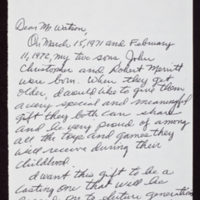 Dear Mr Watson,
On March 15, 1971 and February
11, 1976, my two sons John
Christopher and Robert Merritt
were born. When they get
older, I would like to give them
a very special and meaningful
gift they both can share
and be very proud of among
all the toys and games they
will receive during their
childhood.
I want this gift to be a
lasting one that will be
passed on to future generation